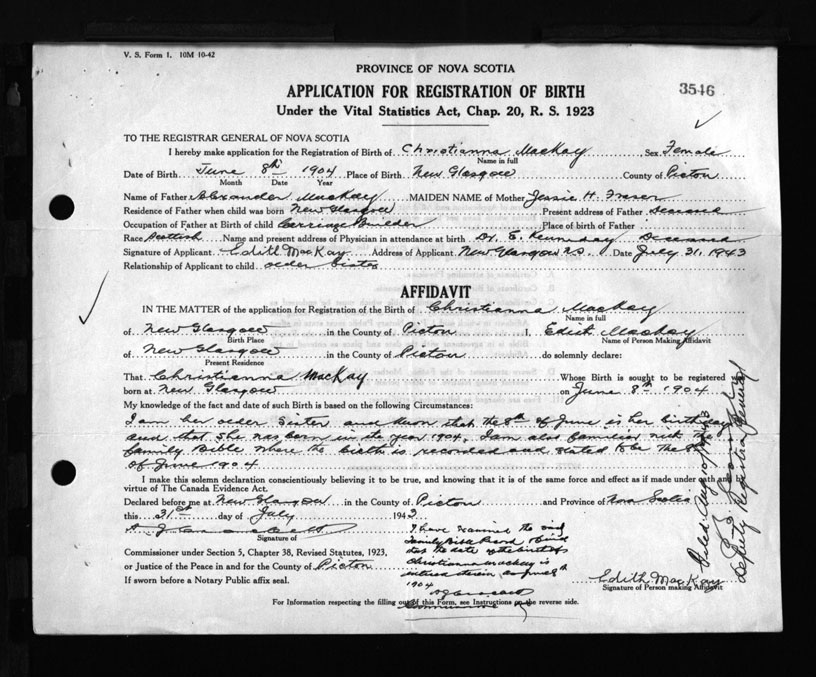 V. S. Form 1. 10M 10-42
PROVINCE OF NOVA SCOTIA
3546
APPLICATION FOR REGISTRATION OF BIRTH
Under the Vital Statistics Act, Chap. 20, R. S. 1923
TO THE REGISTRAR GENERAL OF NOVA SCOTIA
I hereby make application for the Registration of Birth of Christianna MacKay, Sex Female
Name in full
Date of Birth June 8th 1904 Place of Birth New Glasgow County of Pictou
Month Date Year
Name of Father Alexander MacKay MAIDEN NAME of Mother Jessie H. Fraser
Residence of Father when child was born New Glasgow Present address of Father deceased
Occupation of Father at Birth of child Carriage Builder Place of Birth of Father
Race Scottish Name and present address of Physician in attendance at birth Dr. E. Kennedy Deceased
Signature of Applicant Edith MacKay Address of Applicant New Glasgow N.S. Date July 31, 1943
Relationship of Applicant to child older sister
AFFIDAVIT
IN THE MATTER of the application for Registration of the Birth of Christianna MacKay
Name in full
of New Glasgow in the County of Pictou I, Edith MacKay
Birth Place Name of Person Making Affidavit
of New Glasgow in the County of Pictou do solemnly declare:
Present Residence
That Christianna MacKay Whose Birth is sought to be registered was
born at New Glasgow on June 8th 1904
My knowledge of the fact and date of such Birth is based on the following Circumstances:
I am her older sister and know that the 8th of June is her birthday
and that she was born in the year 1904. I am also familiar with the
family Bible where the birth is recorded and stated to be the 8th
of June 1904
I make this solemn declaration conscientiously believing it to be true, and knowing that it is of the same force and effect as if made under oath and by
virtue of The Canada Evidence Act.
Declared before me at New Glasgow in the County of Pictou and Province of Nova Scotia
this 31st day of July 1943
Signature of
Commissioner under Section 5, Chapter 38, Revised Statutes, 1923,
or Justice of the Peace in and for the County of Pictou
If sworn before a Notary Public affix seal.
I have examined the said
family Bible Record & find
that the date of the birth of
Christianna MacKay is
1904
Edith MacKay
Signature of Person making Affidavit
For Information respecting the filling out of this Form, see Instructions on the reverse side.
Filed Aug 10
Deputy Registrar General